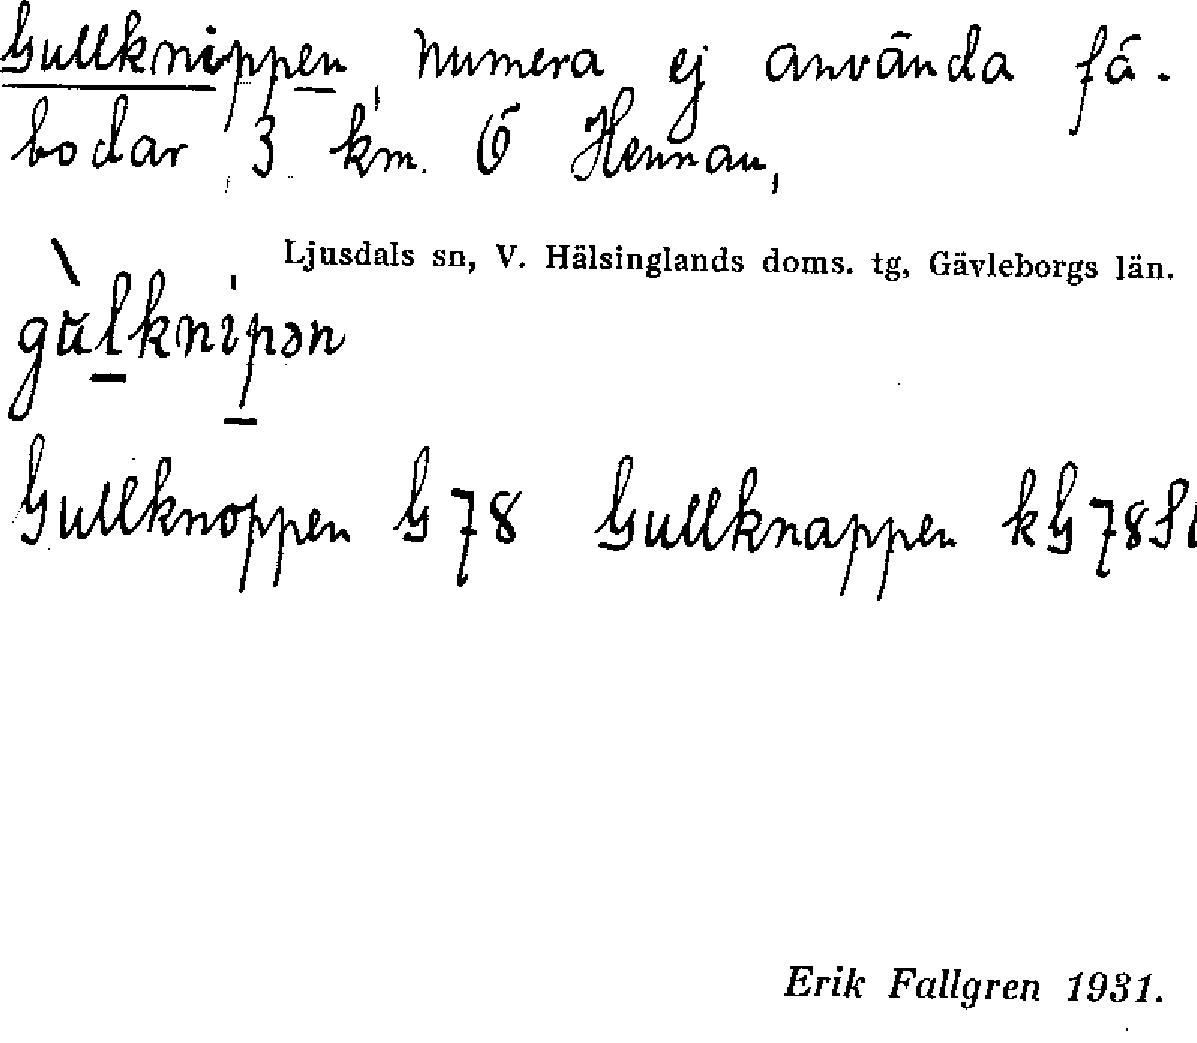 Gullknippen, numera ej använda fä-
bodar 3 km. Ö Hennan,
Ljusdals sn, V. Hälsinglands doms. tg, Gävleborgs län.
gùlknipən
Gullknoppen G 78 Gullknappen kG 78
Erik Fallgren 1931.